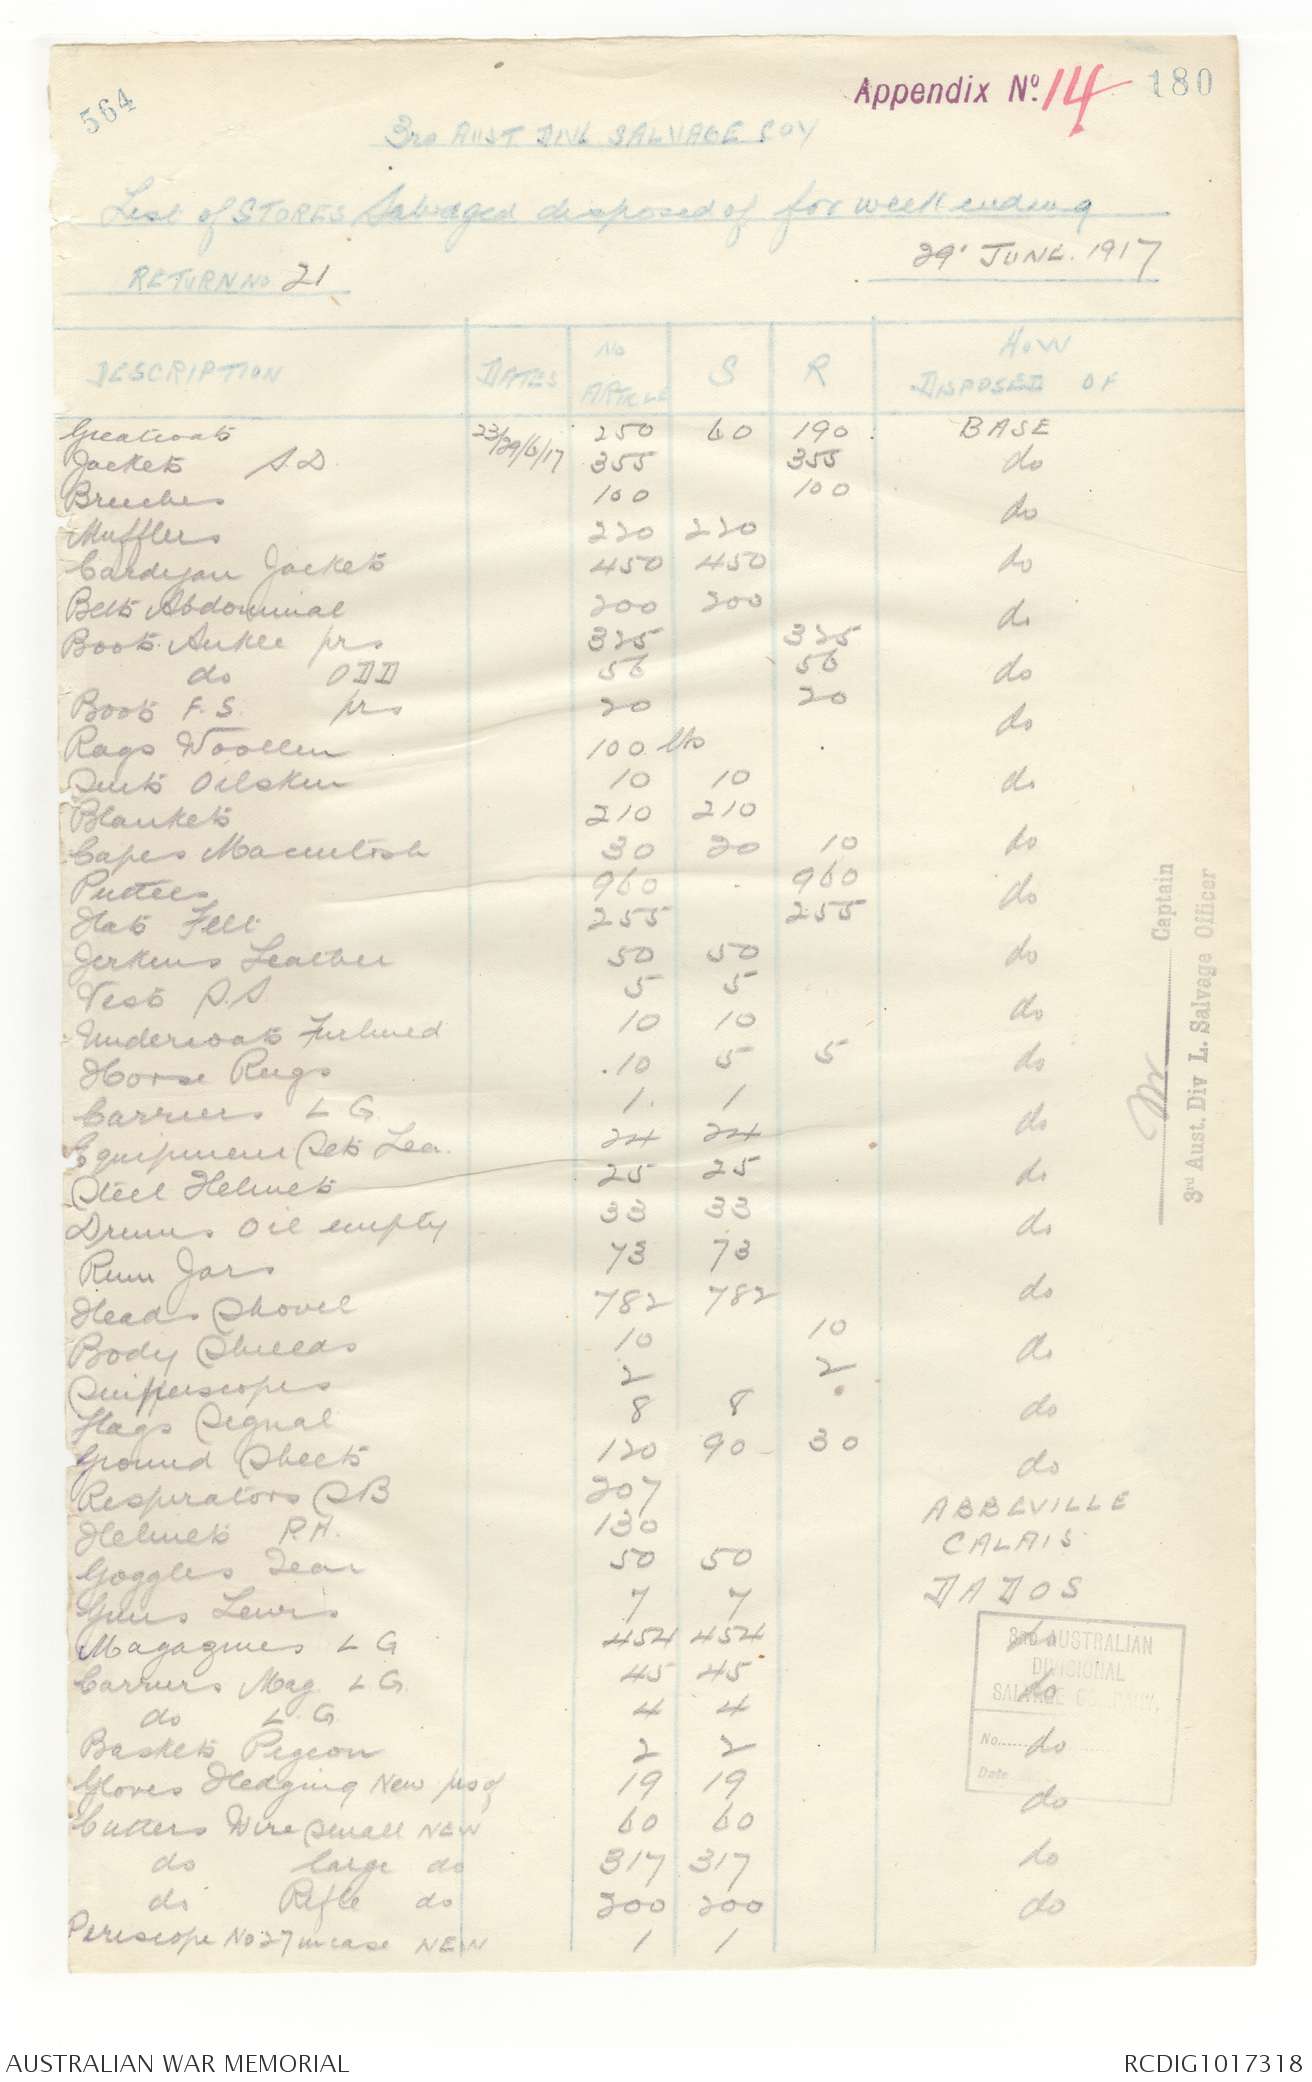 564
Appendix No. 14
180
3RD AUST DIVL SALVAGE COY
List of STORES Salvaged disposed of for week ending
29' JUNE. 1917
RETURN NO 21
DESCRIPTION DATES No ARTICLE S R HOW DISPOSED OF
Greatcoats 23/29/6/17 250 60 190 BASE
Jackets S.D. 355 355 do
Breeches 100 100
Mufflers 220 220 do
Cardigan Jackets 450 450 do
Belts Abdominal 200 200
Boots Ankle prs 325 325 do
do ODD 56 56 do
Boots F.S. prs 20 20
Rags Woollen 100 lbs do
Suits Oilskin 10 10 do
Blankets 210 210
Capes Macintosh 30 20 10 do
Puttees 960 960 do
Hats Felt 255 255
Jerkins Leather 50 50 do
Vests S.S 5 5
Undercoats Furlined 10 10 do
Horse Rugs 10 5 5 do
Carriers L G. 1 1
Equipment Sets Lea. 24 24 do
Steel Helmets 25 25 do
Drums Oil empty 33 33 do
Rum Jars 73 73
Heads Shovel 782 782 do
Body Shields 10 10 do
Sniperscopes 2 2
Flags Signal 8 8 do
Ground Sheets 120 90 30 do
Respirators SB 207 ABBEVILLE
Helmets P.H. 130 CALAIS
Goggles Tear 50 50
Guns Lewis 7 7 DADOS
Magazines L G 454 454 do
Carriers Mag. L G. 45 45 do
do L.G. 4 4
Baskets Pigeon 2 2 do
Gloves Hedging New prs of 19 19 do
Cutters Wire small NEW 60 60
do large do 317 317 do
do Rifle do 200 200 do
Periscope No 27 in case NEW 1 1
Captain
3rd Aust. Div L. Salvage Officer
3RD AUSTRALIAN
DIVISIONAL
SALVAGE COMPANY.
No.
Date
AUSTRALIAN WAR MEMORIAL
RCDIG1017318